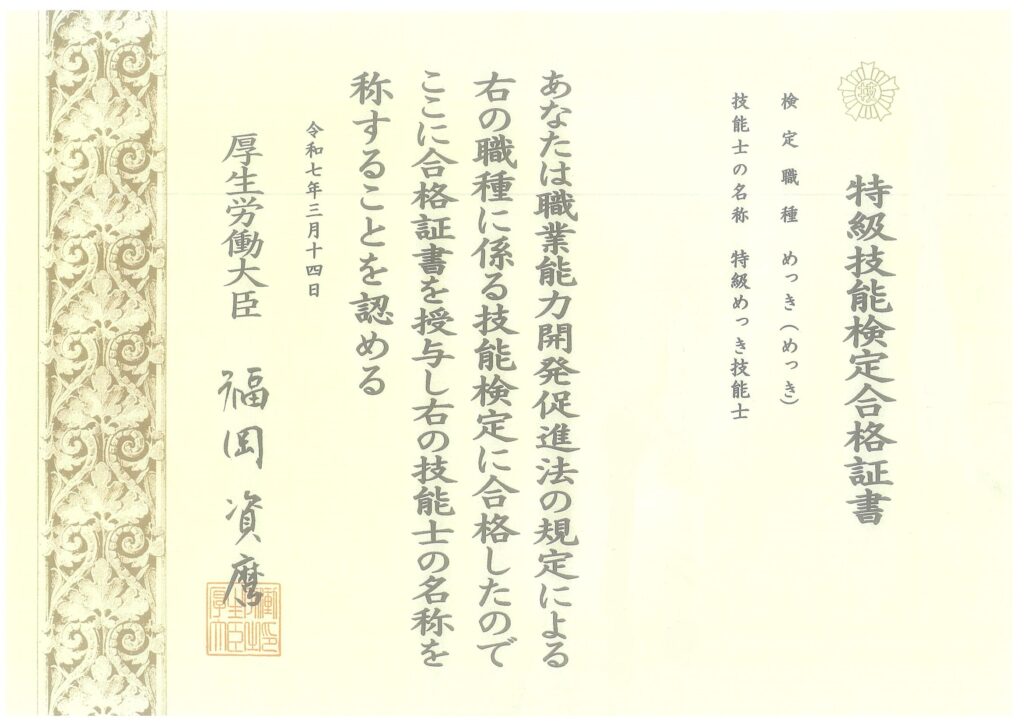 特級技能検定合格証書
検定職種 めっき(めっき)
技能士の名称 特級めっき技能士
あなたは職業能力開発促進法の規定による
右の職種に係る技能検定に合格したので
ここに合格証書を授与し右の技能士の名称を
称することを認める
令和七年三月十四日
厚生労働大臣 福岡資麿